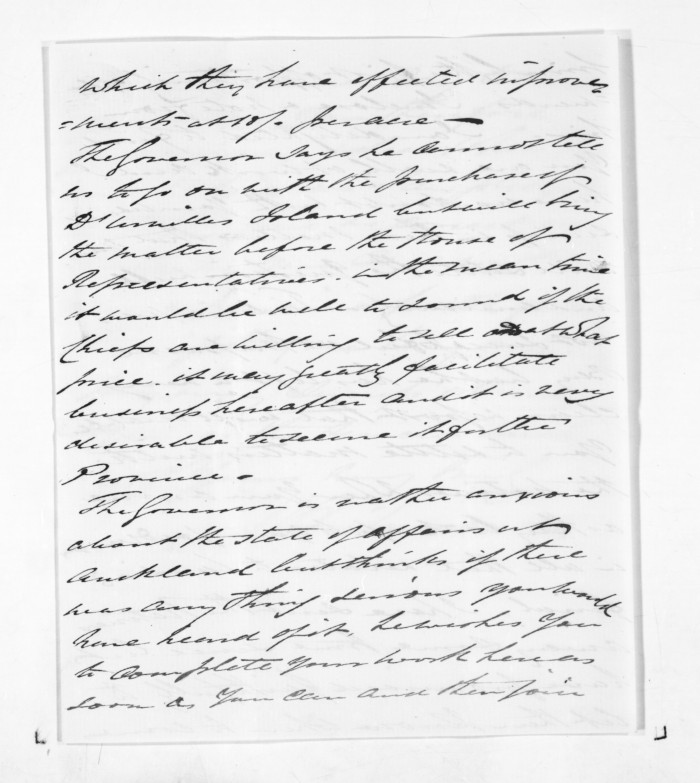 which they have effected improve=
=ments at 10/- per acre —
The Governor says he cannot tell
us to go on with the purchase of
D'Urvilles Island but will bring
the matter before the House of
Representatives. in the mean time
it would be well to sound if the
Chiefs are willing to sell and at what
price. it may greatly facilitate
business hereafter and it is very
desirable to secure it for the
Province -
The Governor is rather anxious
about the state of affairs at
Auckland but thinks if there
was any thing serious you would
have heard of it, he wishes you
to complete your work here as
soon as you can and then join